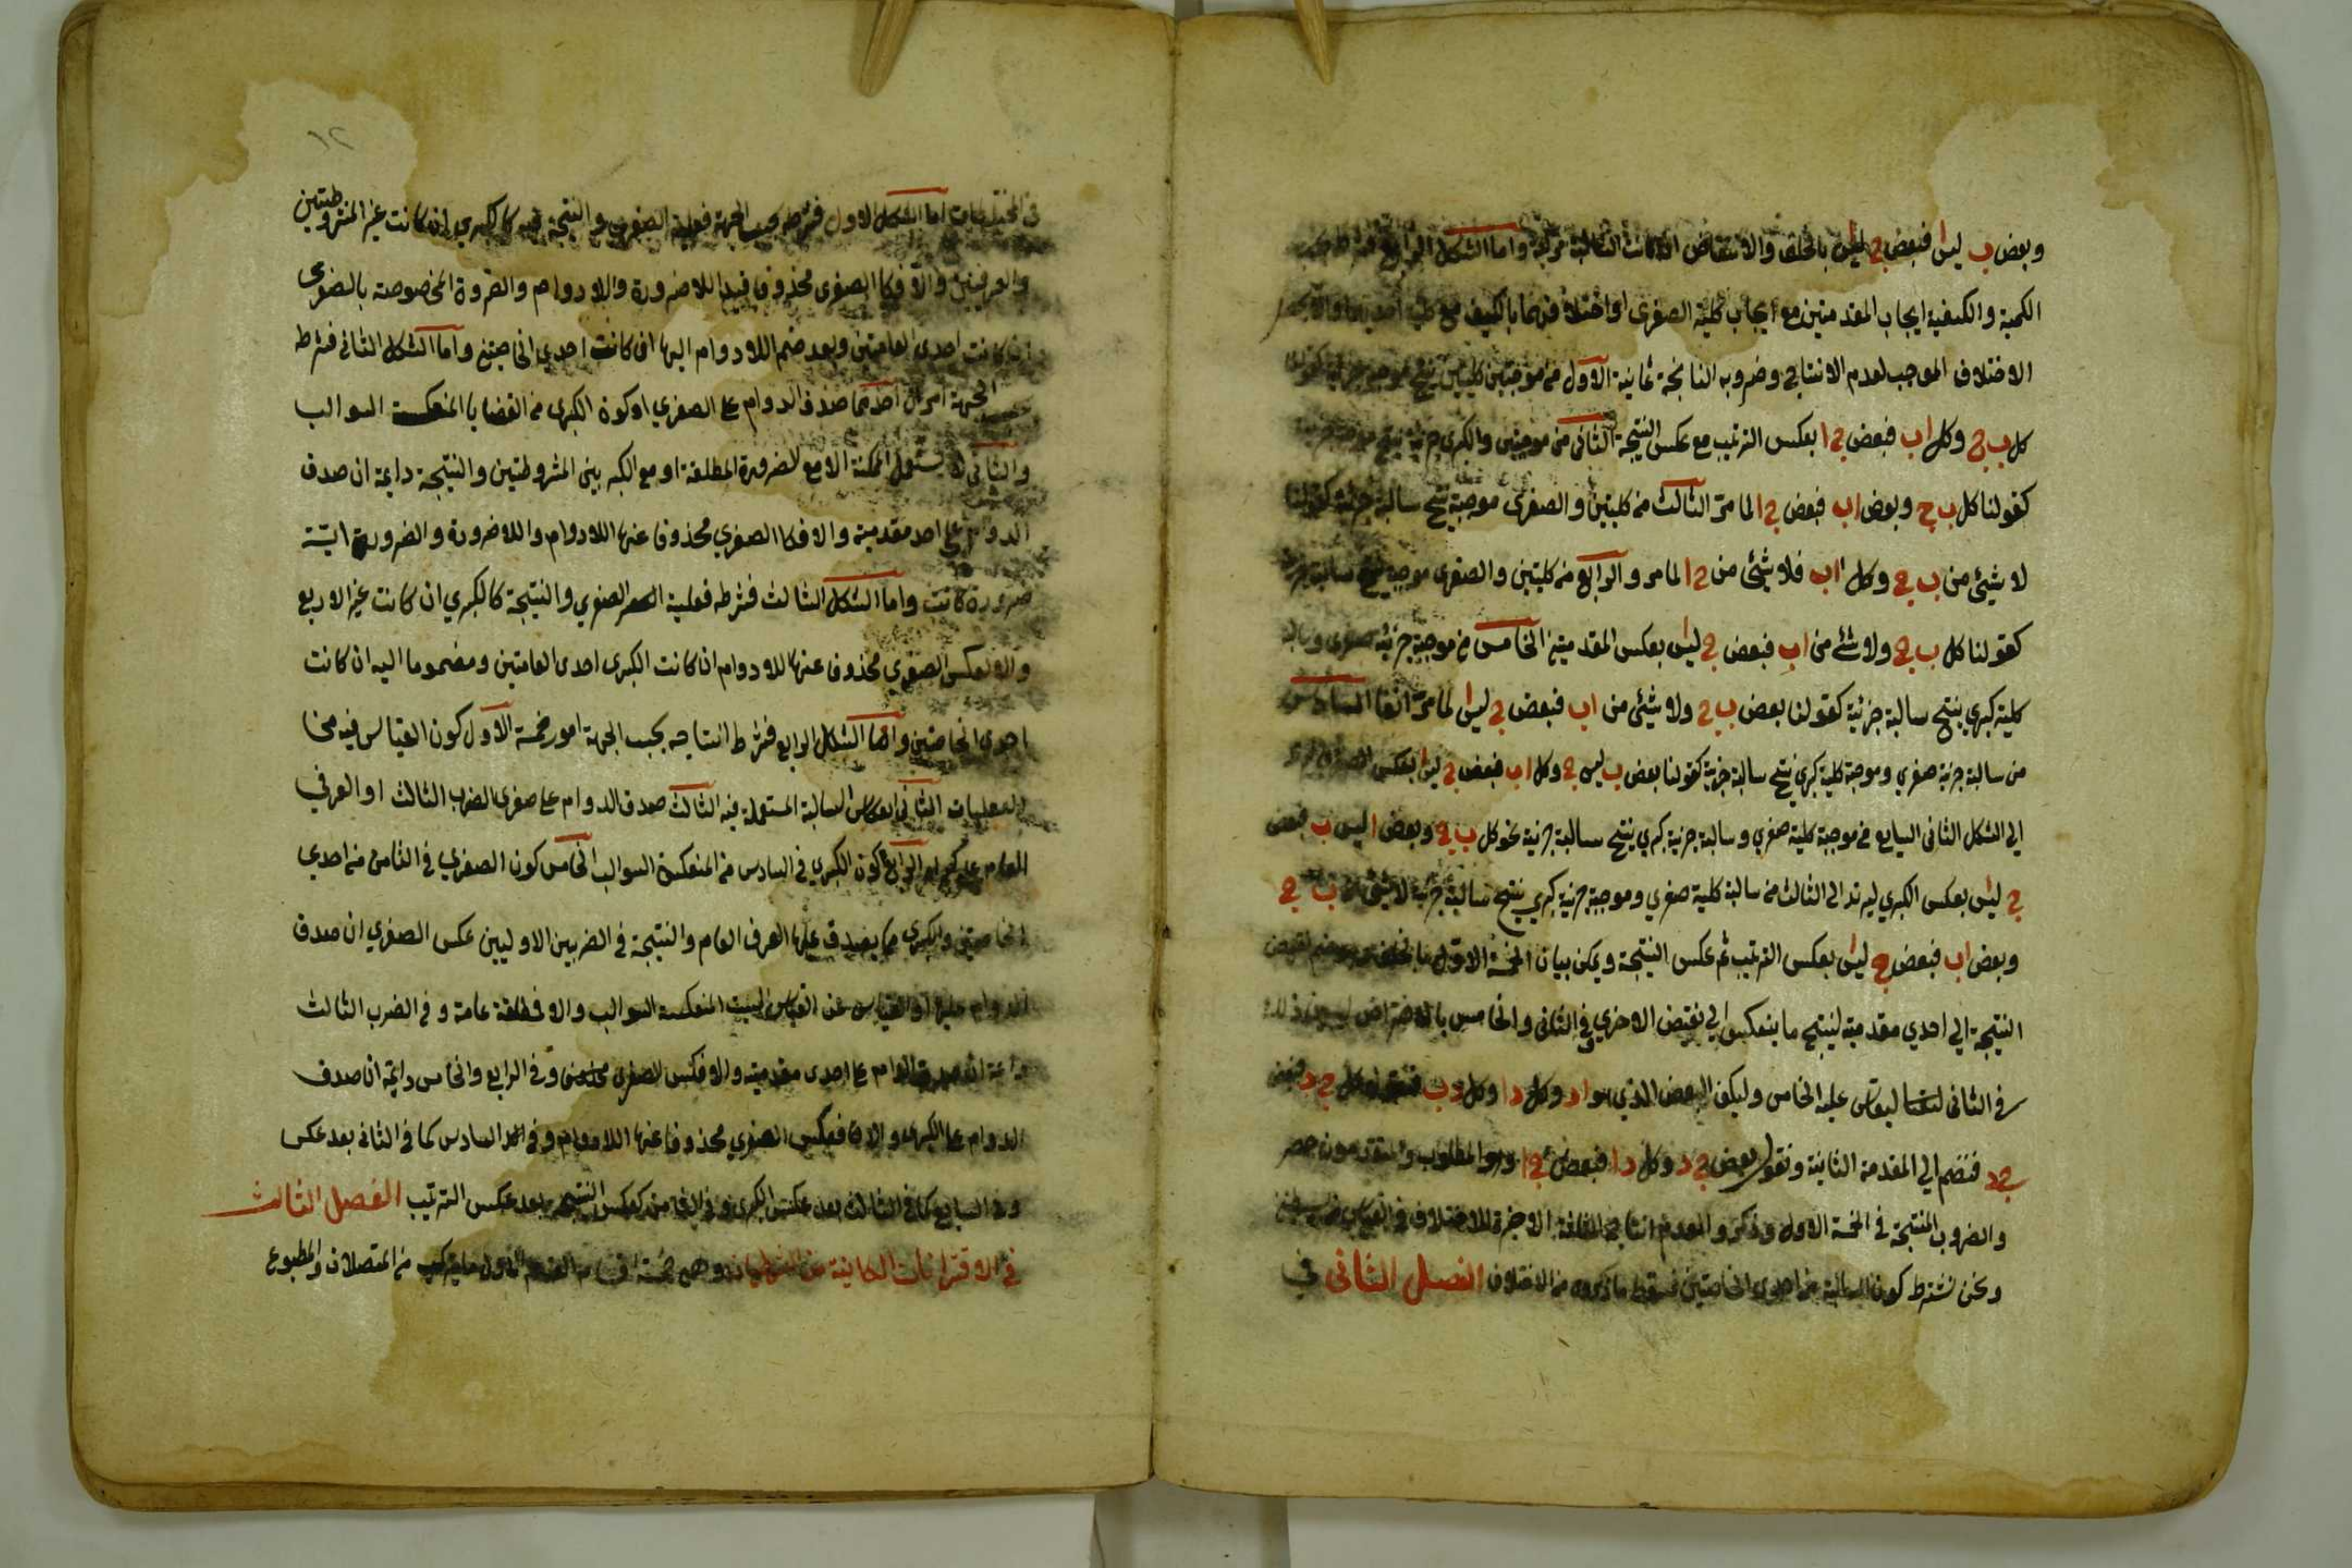 وبعض ب ليس ا فبعض ج ليس ا بالخلف والافتراض ان كانت السالبة مركبة واما الشكل الرابع فشرطه بحسب
الكمية والكيفية ايجاب المقدمتين مع ايجاب كلية الصغرى او اختلافهما بالكيف مع كلية احديهما والا يحصل
الاختلاف الموجب لعدم الانتاج وضروبه الناتجة ثمانية الاول من موجبتين كليتين ينتج موجبة جزئية كقولنا
كل ب ج وكل ا ب فبعض ج ا بعكس الترتيب مع عكس النتيجة الثانى من موجبتين والكبرى جزئية ينتج موجبة جزئية
كقولنا كل ب ج وبعض ا ب فبعض ج ا لما مر الثالث من كليتين والصغرى موجبة ينتج سالبة جزئية كقولنا
لا شيئ من ب ج وكل ا ب فلا شيئ من ج ا لما مر والرابع من كليتين والصغرى موجبة ينتج سالبة جزئية
كقولنا كل ب ج ولا شئ من ا ب فبعض ج ليس ا بعكس المقدمتين الخامس من موجبة جزئية صغرى وسالبة
كلية كبري ينتج سالبة جزئية كقولنا بعض ب ج ولا شيئ من ا ب فبعض ج ليس ا لما مر انفا السادس
من سالبة جزئية صغري وموجبة كلية كبري ينتج سالبة جزئية كقولنا بعض ب ليس ج وكل ا ب فبعض ج ليس ا بعكس الصغرى
الي الشكل الثانى السابع من موجبة كلية صغري وسالبة جزئية كبري ينتج سالبة جزئية نحو كل ب ج وبعض ا ليس ب فبعض
ج ليس ا بعكس الكبري ليرتد الى الثالث من سالبة كلية صغري وموجبة جزئية كبري ينتج سالبة جزئية لا شيئ من ب ج
وبعض ا ب فبعض ج ليس ا بعكس الترتيب ثم عكس النتيجة ويمكن بيان الخمسة الاول بالخلف وهو ضم نقيض
النتيجة الي احدي مقدمتيه لينتج ما ينعكس الي نقيض الاخري وفى الثانى والخامس بالافتراض لبيان ذلك
فى الثانى ليقاس عليه الخامس وليكن البعض الذي هو ا د وكل د ا وكل د ب فنقول كل ج د فبعض
ج د فنضم الي المقدمة الثانية ونقول بعض ج د وكل د ا فبعض ج ا وهو المطلوب والمتقدمون حصر
والضروب المنتجة فى الخمسة الاول وذكروا لعدم انتاج الثلثة الاخيرة للاختلاف فى القياس
ونحن نشترط كون السالبة من احدى الخاصتين فسقط ما ذكروه من الاختلاف الفصل الثانى في
١٢
فى المختلطات اما الشكل الاول فشرطه بحسب الجهة فعلية الصغرى والنتيجة فيه كالكبرى ان كانت غير المشروطتين
والعرفيتين والا فكالصغرى محذوفا قيد اللاضرورة واللادوام والضرورة المخصوصة بالصغرى
ان كانت احدى العامتين وبعد ضم اللادوام اليها ان كانت احدى الخاصتين واما الشكل الثانى فشرطه
الجهة امران احدهما صدق الدوام على الصغري او كون الكبرى من القضايا المنعكسة السوالب
والثانى لا يستعمل الممكنة الا مع الضرورة المطلقة او مع الكبريين المشروطتين والنتيجة دايمة ان صدق
الدوام على احد مقدمتيه والا فكالصغري محذوفا عنها اللادوام واللاضرورة والضرورة اية
ضرورة كانت واما الشكل الثالث فشرطه فعلية الصغري والنتيجة كالكبري ان كانت غير الاربع
والا فكعكس الصغري محذوفا عنها اللادوام ان كانت الكبرى احدى العامتين ومضموما اليه ان كانت
احدى الخاصتين واما الشكل الرابع فشرط انتاجه بحسب الجهة امور خمسة الاول كون القياس فيه من
الفعليات الثانى انعكاس السالبة المستعملة فيه الثالث صدق الدوام على صغرى الضرب الثالث او العرفي
العام على كبراه الرابع كون الكبري فى السادس من المنعكسة السوالب الخامس كون الصغري فى الثامن من احدي
الخاصتين والكبرى مما يصدق عليها العرفى العام والنتيجة فى الضربين الاوليين عكس الصغري ان صدق
الدوام عليها او القياس من الست المنعكسة السوالب والا فمطلقة عامة وفى الضرب الثالث
دايمة ان صدق الدوام على احدى مقدمتيه والا فعكس الصغرى وفى الرابع والخامس دايمة ان صدق
الدوام على الكبرى والا فعكس الصغري محذوفا عنها اللادوام وفى السادس كما فى الثانى بعد عكس
وفى السابع كما فى الثالث بعد عكس الكبرى وفى الثامن كعكس النتيجة بعد عكس الترتيب الفصل الثالث
في الاقترانات الكائنة من الشرطيات وهى خمسة اقسام القسم الاول ما يتركب من المتصلات والمطبوع